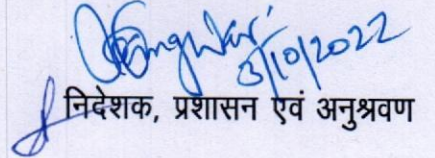 3/10/2022
निदेशक, प्रशासन एवं अनुश्रवण